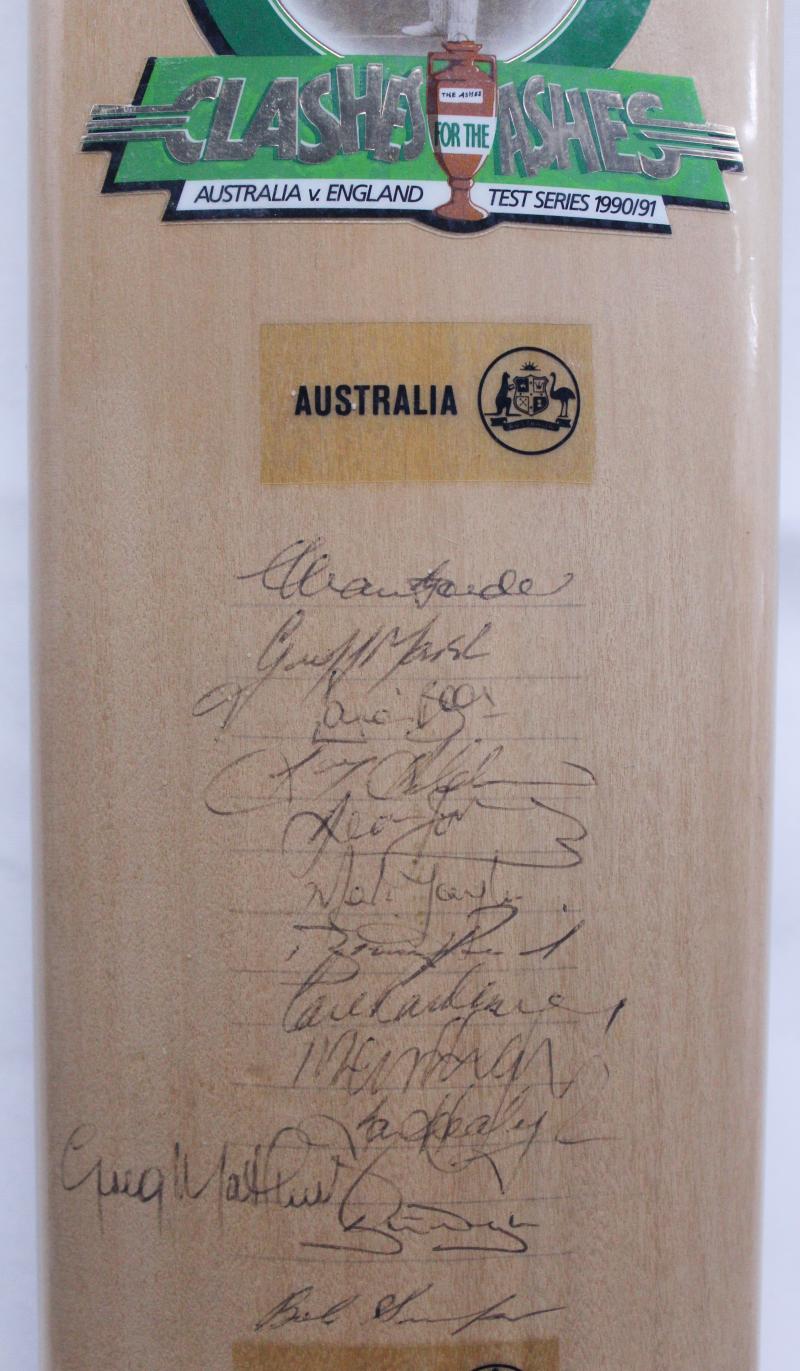 CLASHES FOR THE ASHES
THE ASHES
AUSTRALIA v. ENGLAND TEST SERIES 1990/91
AUSTRALIA
Allan Border
Geoff Marsh
David Boon
Dean Jones
Mark Taylor
Bruce Reid
Carl Rackemann
Merv Hughes
Ian Healy
Greg Matthews
Bob Simpson